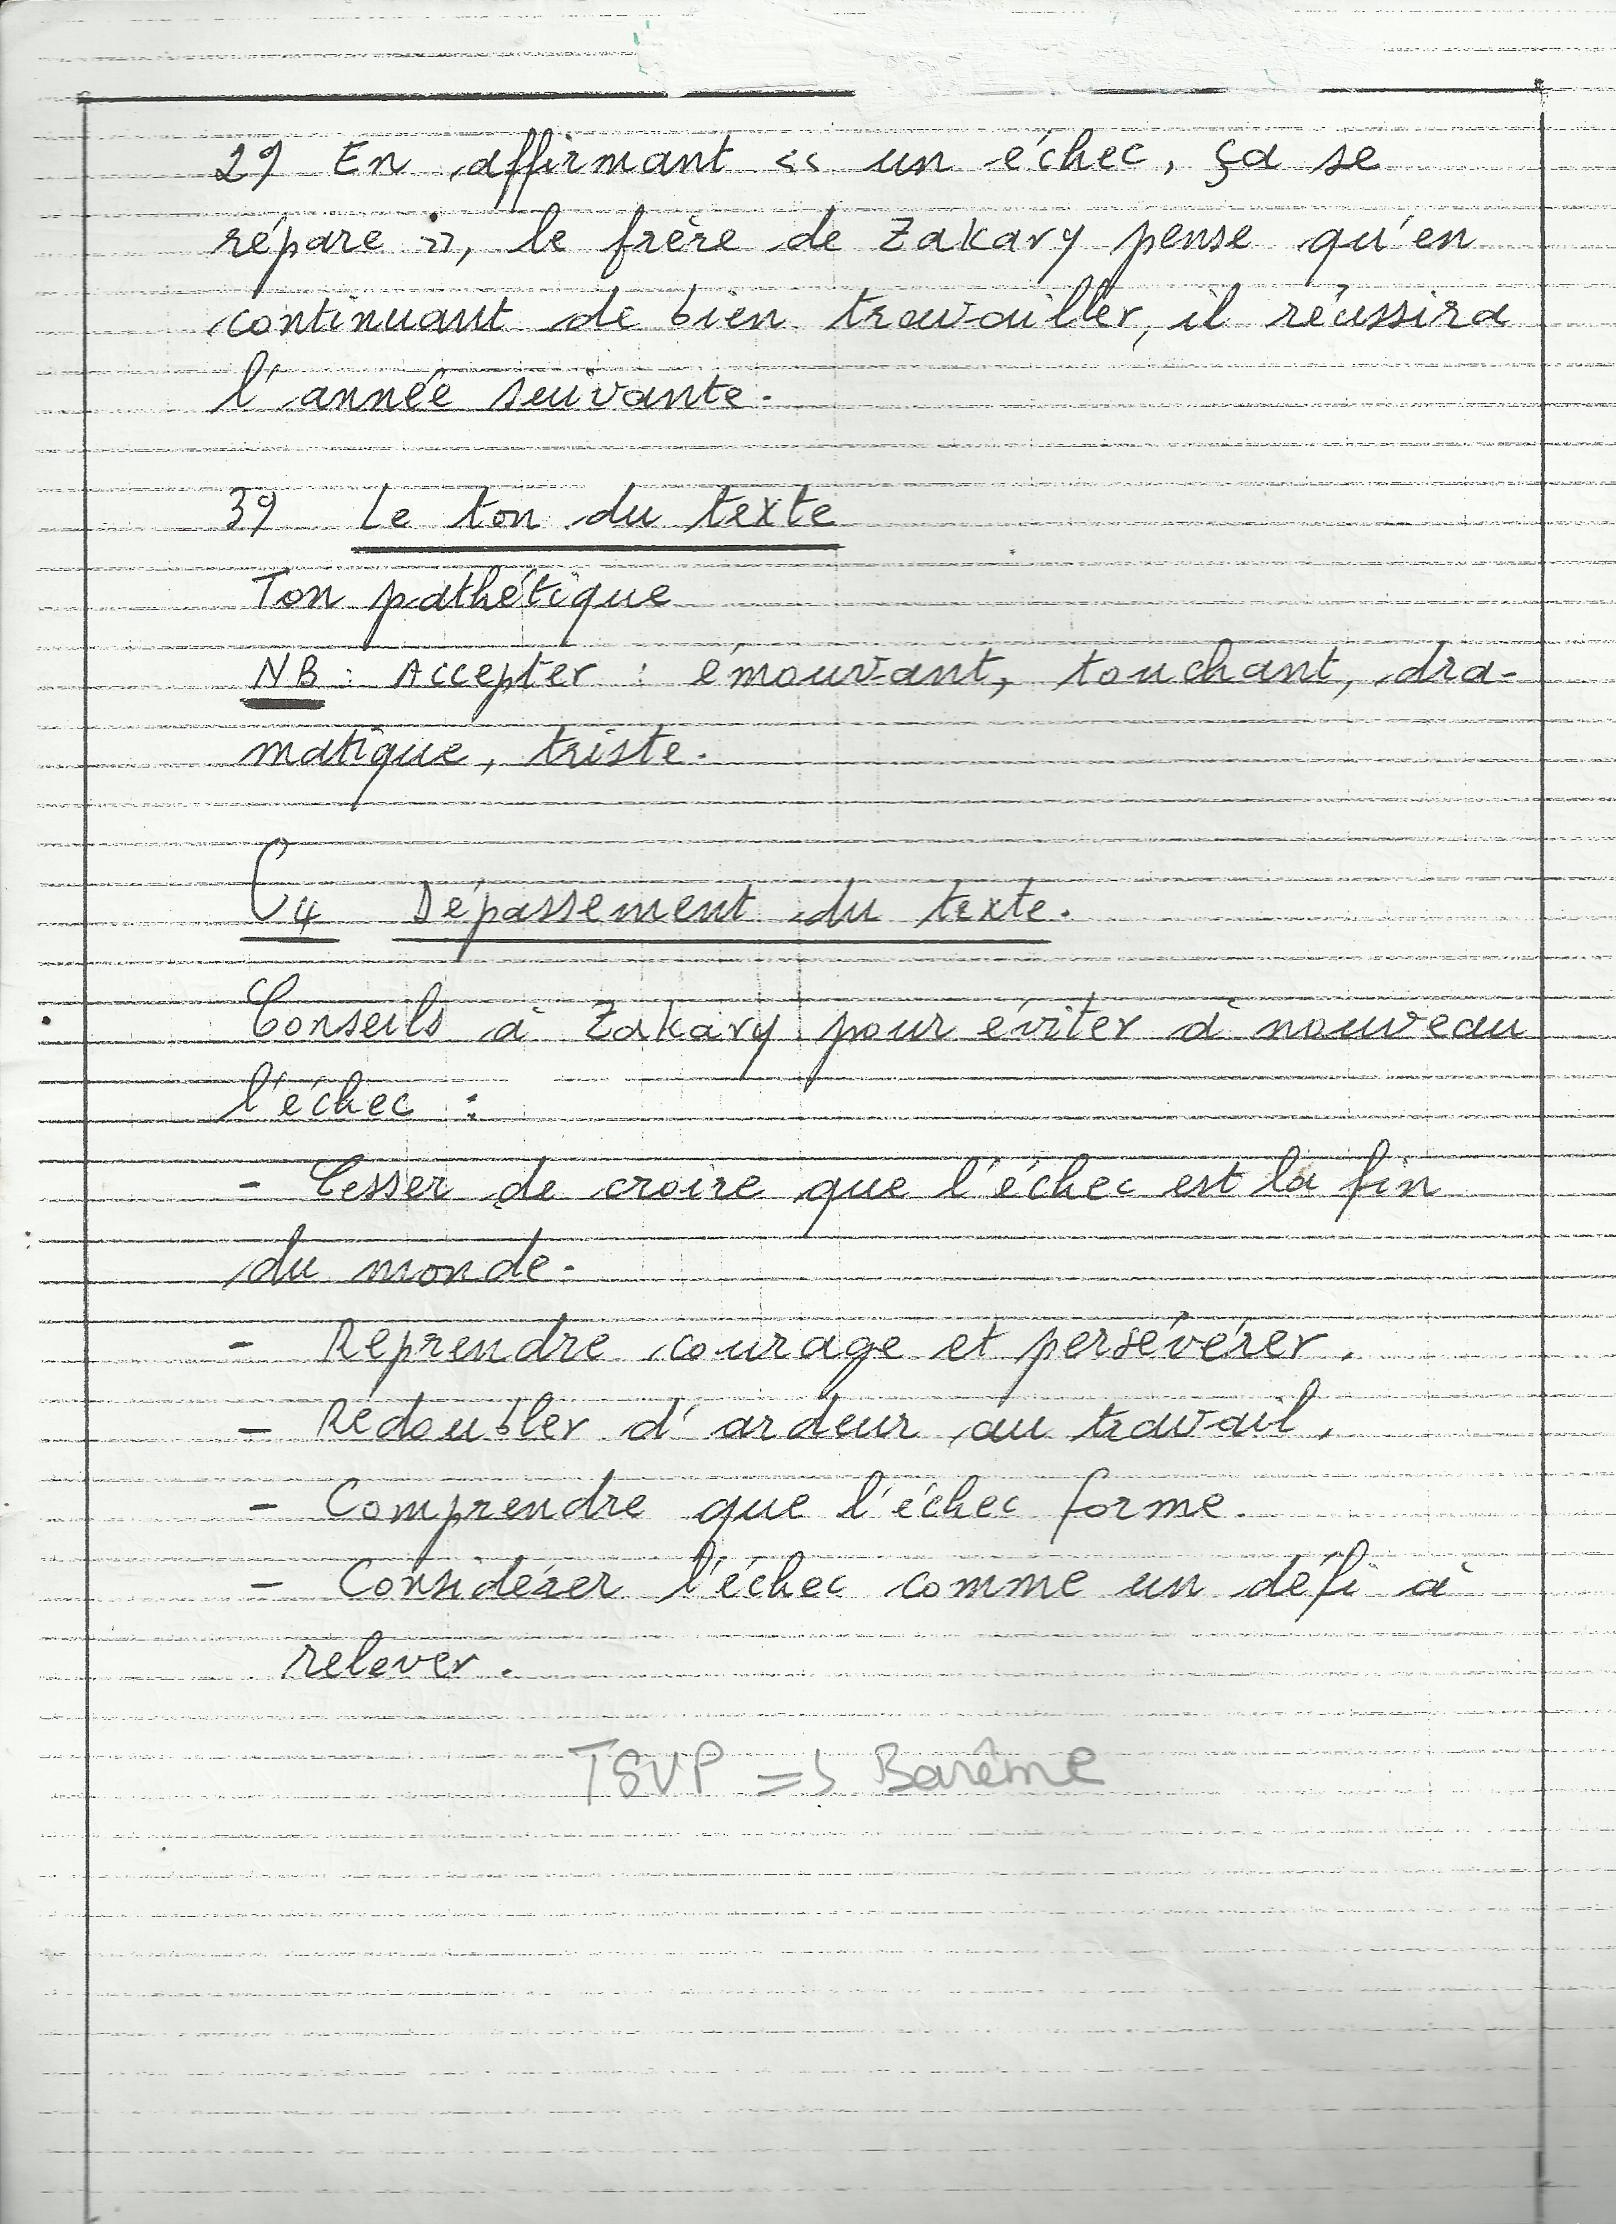 2°) En affirmant << un échec, ça se
répare >>, le frère de Zakary pense qu'en
continuant de bien travailler, il réussira
l'année suivante.
3°) Le ton du texte
Ton pathétique
NB : Accepter : émouvant, touchant, dra-
matique, triste.
C4 Dépassement du texte.
Conseils à Zakary pour éviter à nouveau
l'échec :
- Cesser de croire que l'échec est la fin
du monde.
- Reprendre courage et persévérer.
- Redoubler d'ardeur au travail.
- Comprendre que l'échec forme.
- Considérer l'échec comme un défi à
relever.
TSVP => Barême